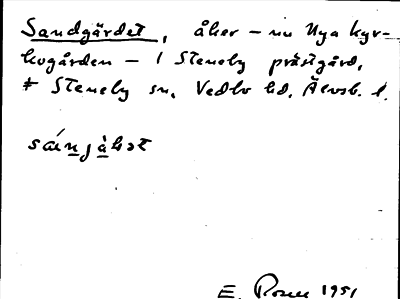 Sandgärdet, åker – nu Nya kyr-
kogården – / Steneby prästgård,
* Steneby sn, Vedbo hd, Älvsb. l.
sánjàlət
E. Rosen 1951